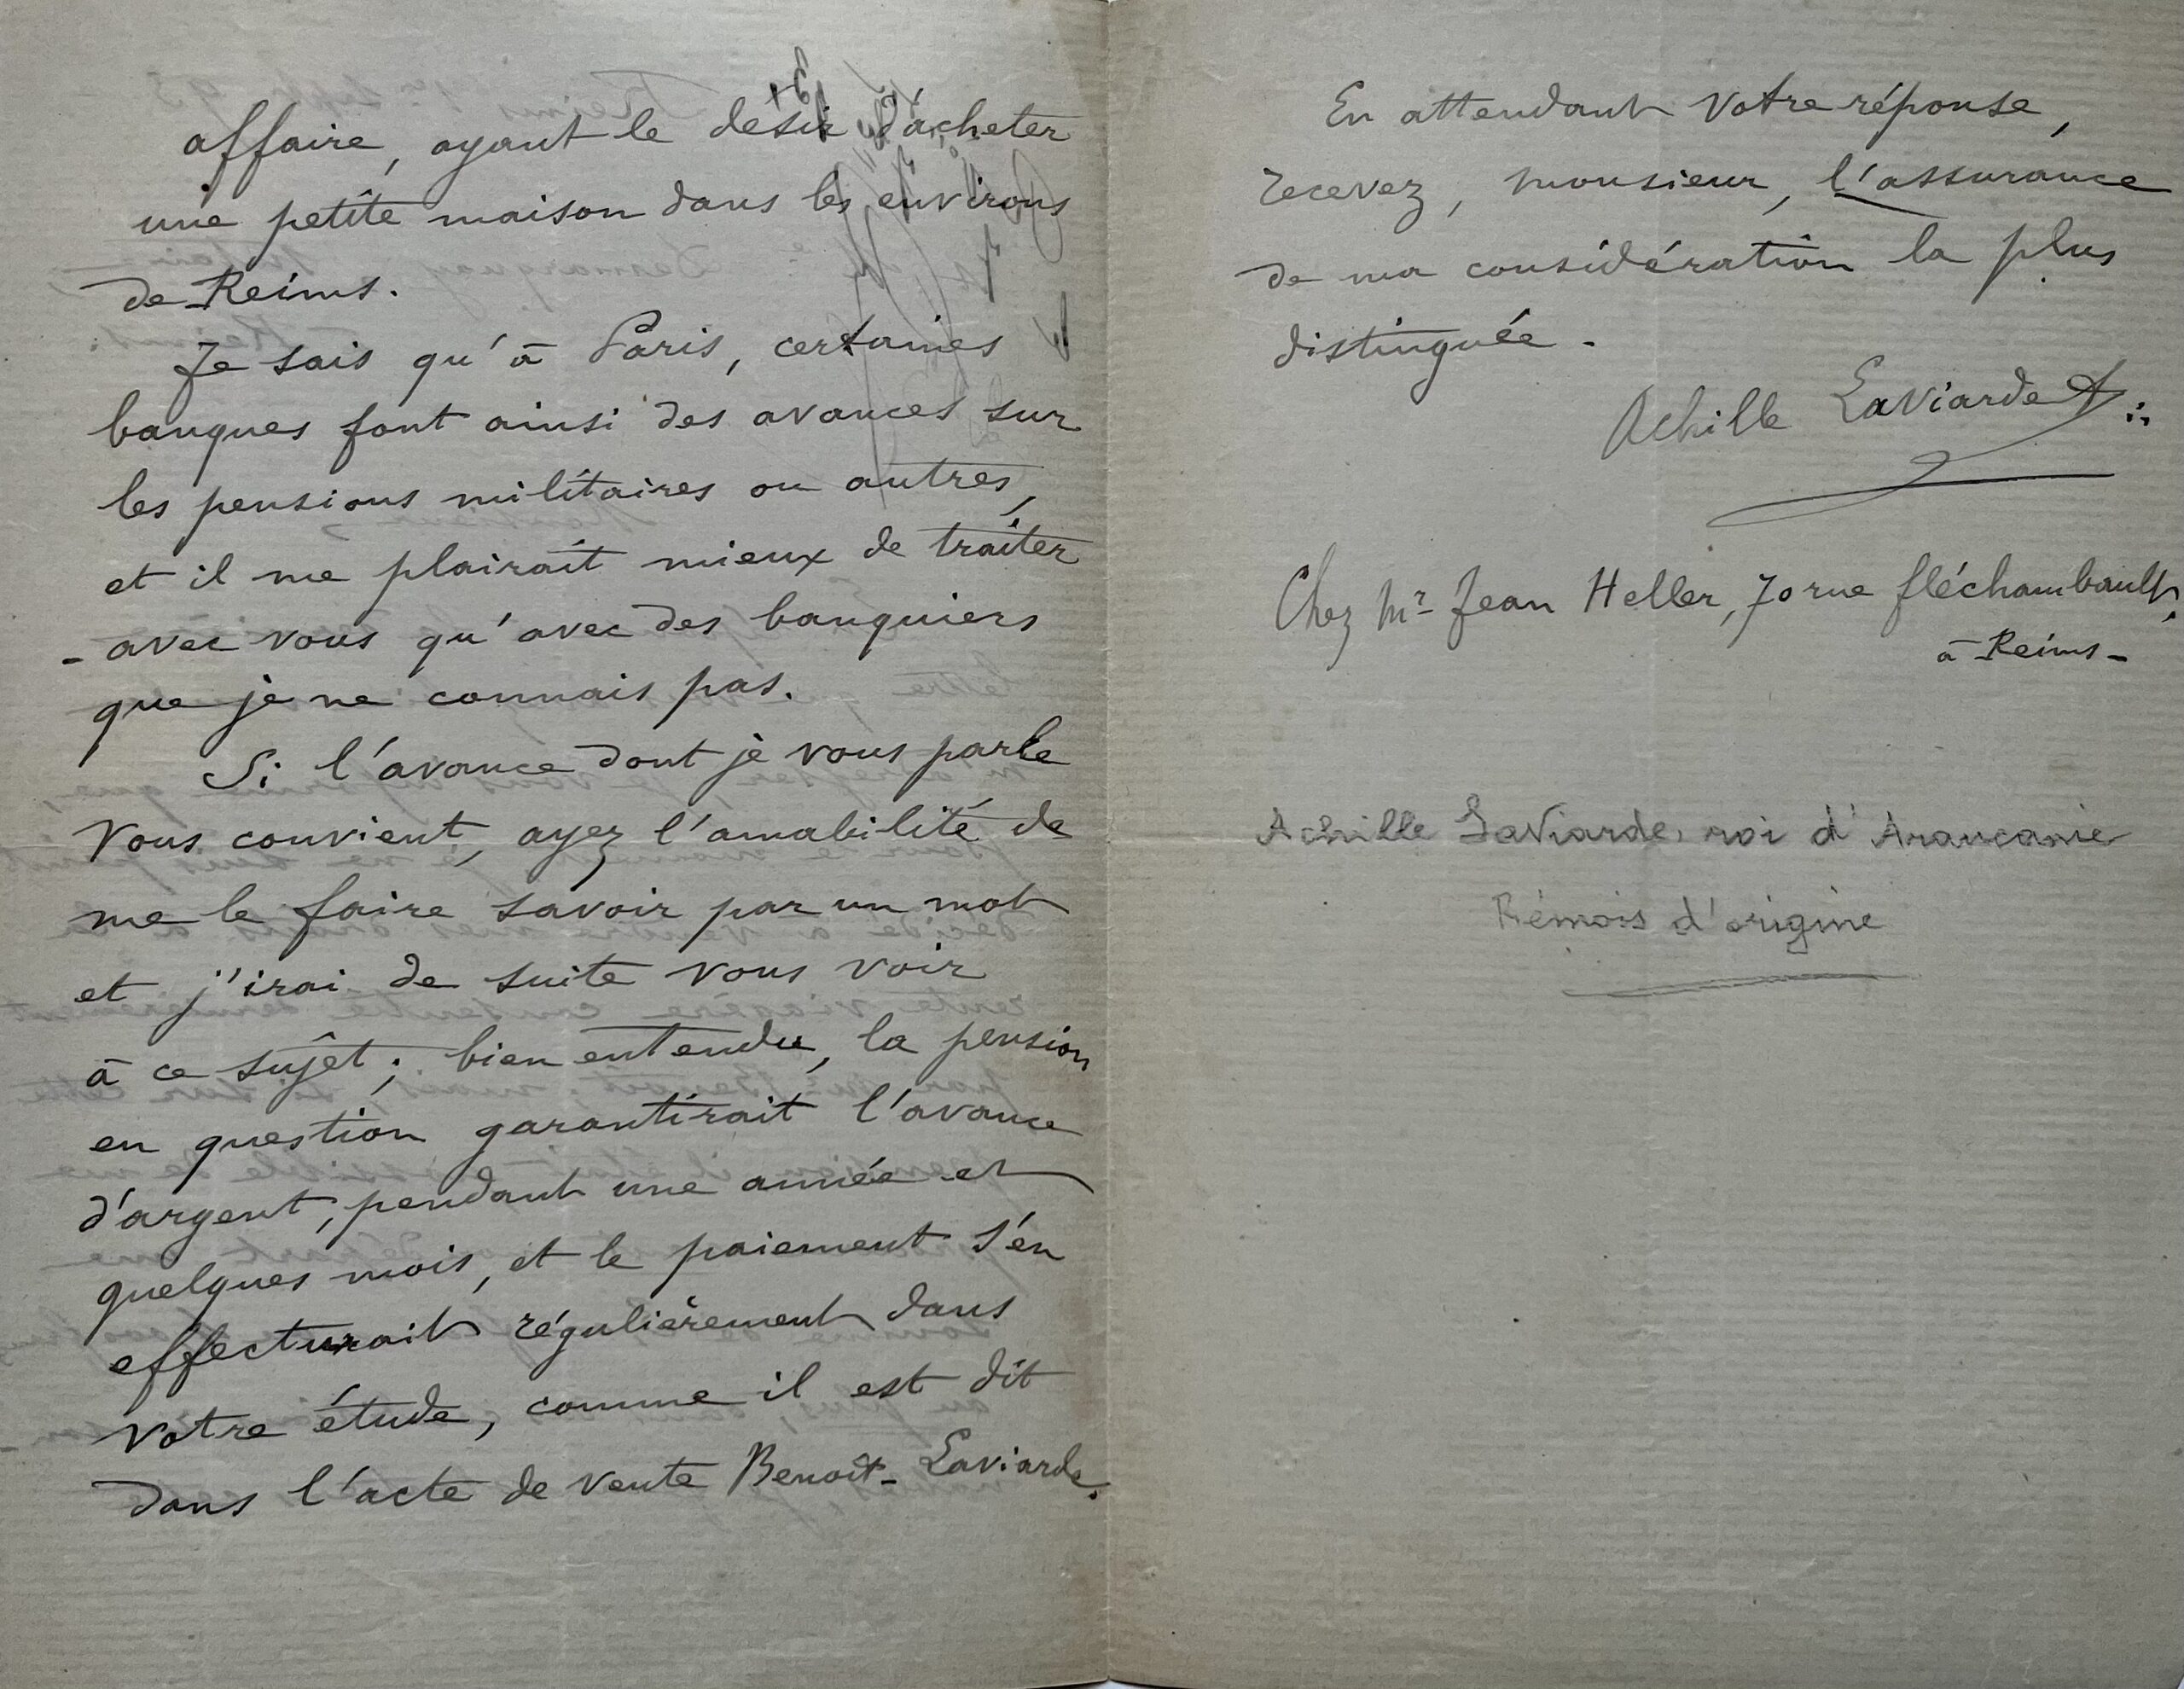 affaire, ayant le désir d'acheter
une petite maison dans les environs
de Reims.
Je sais qu'à Paris, certaines
banques font ainsi des avances sur
les pensions militaires ou autres,
et il me plairait mieux de traiter
- avec vous qu'avec des banquiers
que je ne connais pas.
Si l'avance dont je vous parle
vous convient, ayez l'amabilité de
me le faire savoir par un mot
et j'irai de suite vous voir
à ce sujet; bien entendu, la pension
en question garantirait l'avance
d'argent, pendant une année et
quelques mois, et le paiement s'en
effecturait régulièrement dans
votre étude, comme il est dit
dans l'acte de vente Benoît-Laviarde.
En attendant votre réponse,
recevez, monsieur, l'assurance
de ma considération la plus
distinguée.
Achille Laviarde
Chez Mr Jean Heller, 70 rue fléchambault,
à Reims-
Achille Laviarde, roi d'Araucanie
Rémois d'origine